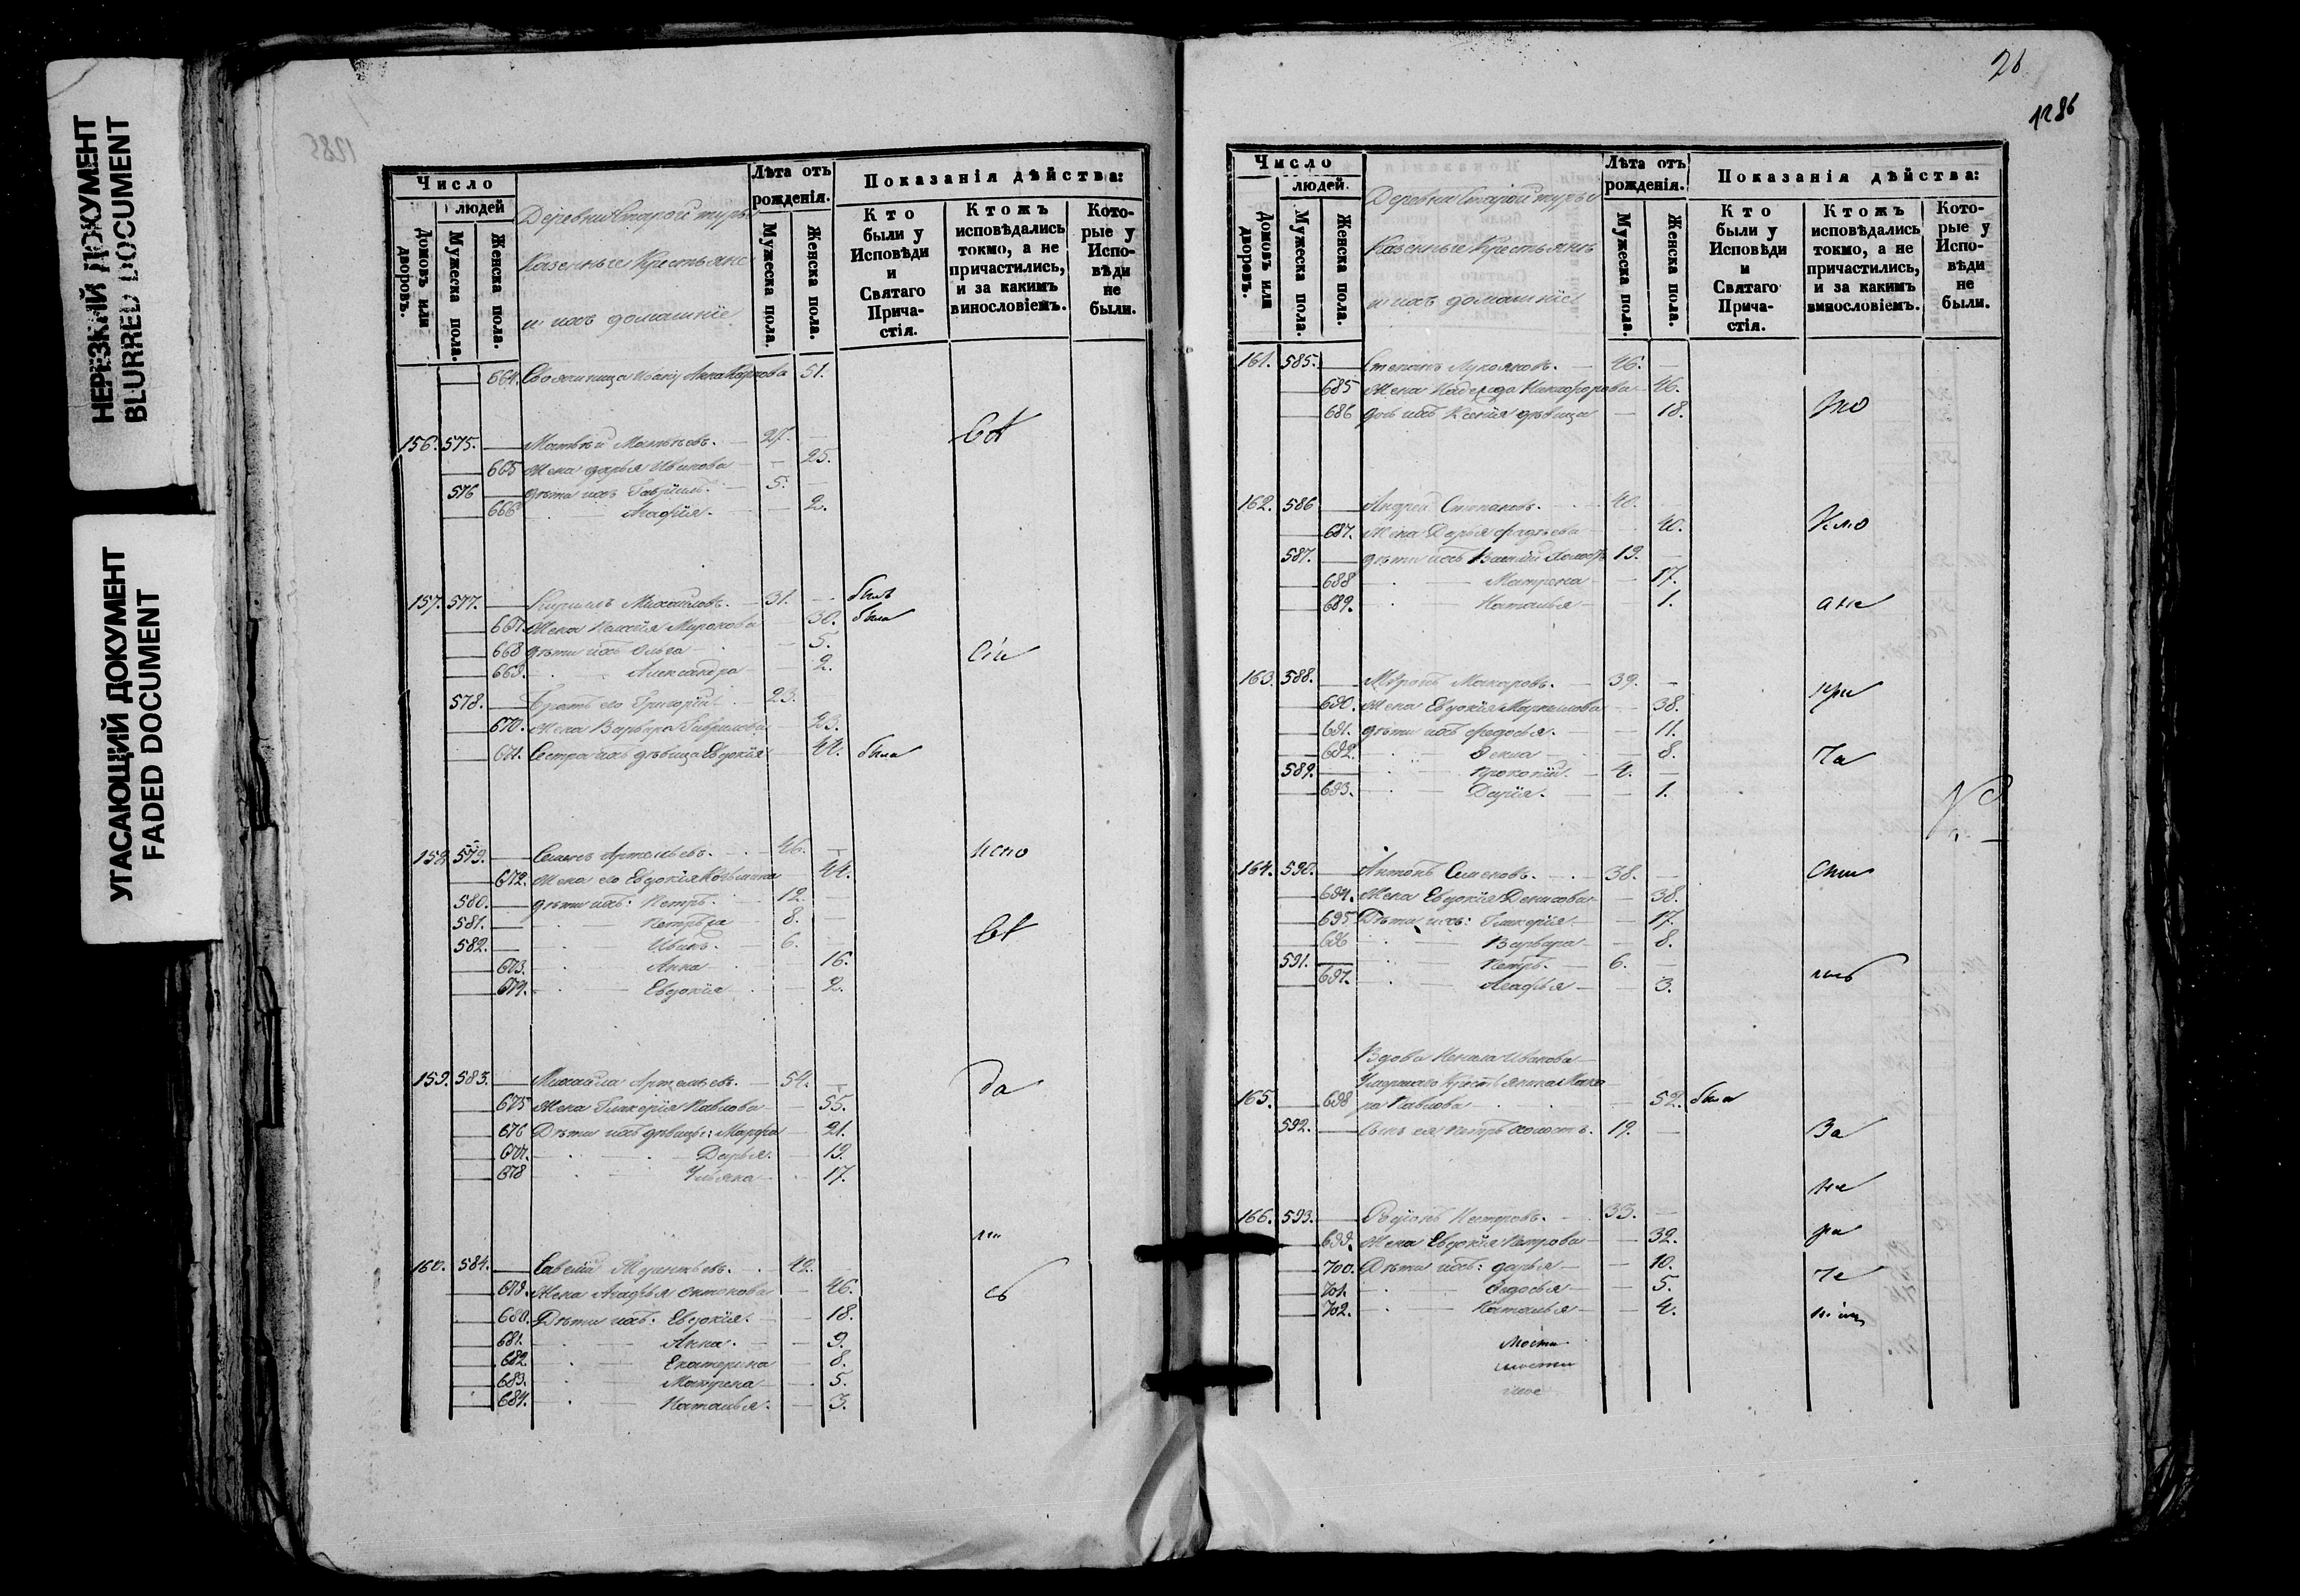 НЕРЕЗКИЙ ДОКУМЕНТ
BLURRED DOCUMENT
УГАСАЮЩИЙ ДОКУМЕНТ
FADED DOCUMENT
1285
Число
людей
Домовъ или дворовъ.
Мужеска пола.
Женска пола.
Деревни Старой турьи
Казенные Крестьяне
и ихъ домашніе
Лѣта отъ рожденія.
Мужеска пола.
Женска пола.
Показанія дѣйства:
Кто были у Исповѣди и Святаго Причастія.
Ктожъ исповѣдались токмо, а не причастились, и за какимъ винословіемъ.
Которые у Исповѣди не были.
664. Анна 51.
156. 575. Матвѣй Матвѣевъ. 27.
665 Жена дарья Иванова 25.
576 дѣти ихъ Гавріилъ. 5.
666 Агафія. 2.
157. 577. Кириллъ Михайловъ. 31. былъ
667. Жена Миронова 30. была
668 дѣти ихъ Ольга 5.
669. Александра 2.
578. Братъ его Григорій 23.
670. Жена Варвара Гаврилова 23.
671. Сестра ихъ дѣвица Евдокія 44. была
158. 579. Семенъ Артемьевъ. 46. испо
672. Жена его Евдокія 44.
580. дѣти ихъ: Петръ. 12.
581. 8.
582. Иванъ. 6.
673. Анна 16.
674. Евдокія 2.
159. 583. Михаила Артемьевъ. 54. да
675 Жена Гликерія Павлова 55.
676 Дѣти ихъ дѣвицы: Марфа 21.
677. Дарья. 19.
678 Ульяна 17.
160. 584. Савелій Терентьевъ. 42.
679. Жена Агафья Антонова 46. сь
680. Дѣти ихъ: Евдокія. 18.
681. Анна. 9.
682. Екатерина 8.
683. Матрена 5.
684. Наталья. 3.
26
1286
Число
людей.
Домовъ или дворовъ.
Мужеска пола.
Женска пола.
Деревни Старой турьи
Казенные Крестьяне
и ихъ домашніе
Лѣта отъ рожденія.
Мужеска пола.
Женска пола.
Показанія дѣйства:
Кто были у Исповѣди и Святаго Причастія.
Ктожъ исповѣдались токмо, а не причастились, и за какимъ винословіемъ.
Которые у Исповѣди не были.
161. 585. Степанъ 46.
685 Жена Надежда Никифорова 46.
686 дочь ихъ Ксенія дѣвица 18. То
162. 586 Андрей Степановъ. 40.
687. Жена Дарья Фадѣева 40. кмо
587. дѣти ихъ Василій Холостъ 19.
688 Матрена 17.
689. Наталья 1. а не
163. 588. Миронъ Макаровъ. 39. при
690. Жена Евдокія 38.
691. дѣти ихъ Федосья. 11.
692. Фекла 8. ча
589. Прокопій. 4.
693. Дарія. 1.
164. 590. Антонъ Семеновъ. 38. сти
694. Жена Евдокія Денисова 38.
695 Дѣти ихъ: Гликерія 17.
696 Варвара 8.
591. Петръ. 6. лись
697. Агафья 3.
Вдова Иванова
Умершаго Крестьянина Мака
165. 698 ра Павлова 52. была
592. Сынъ ея Петръ холостъ. 19. За
не
166. 593. Родіонъ Петровъ. 33.
699. Жена Евдокія Петрова 32. ра
700. Дѣти ихъ: дарья 10.
701. Федосья 5. че
702. Наталья 4. ніемъ